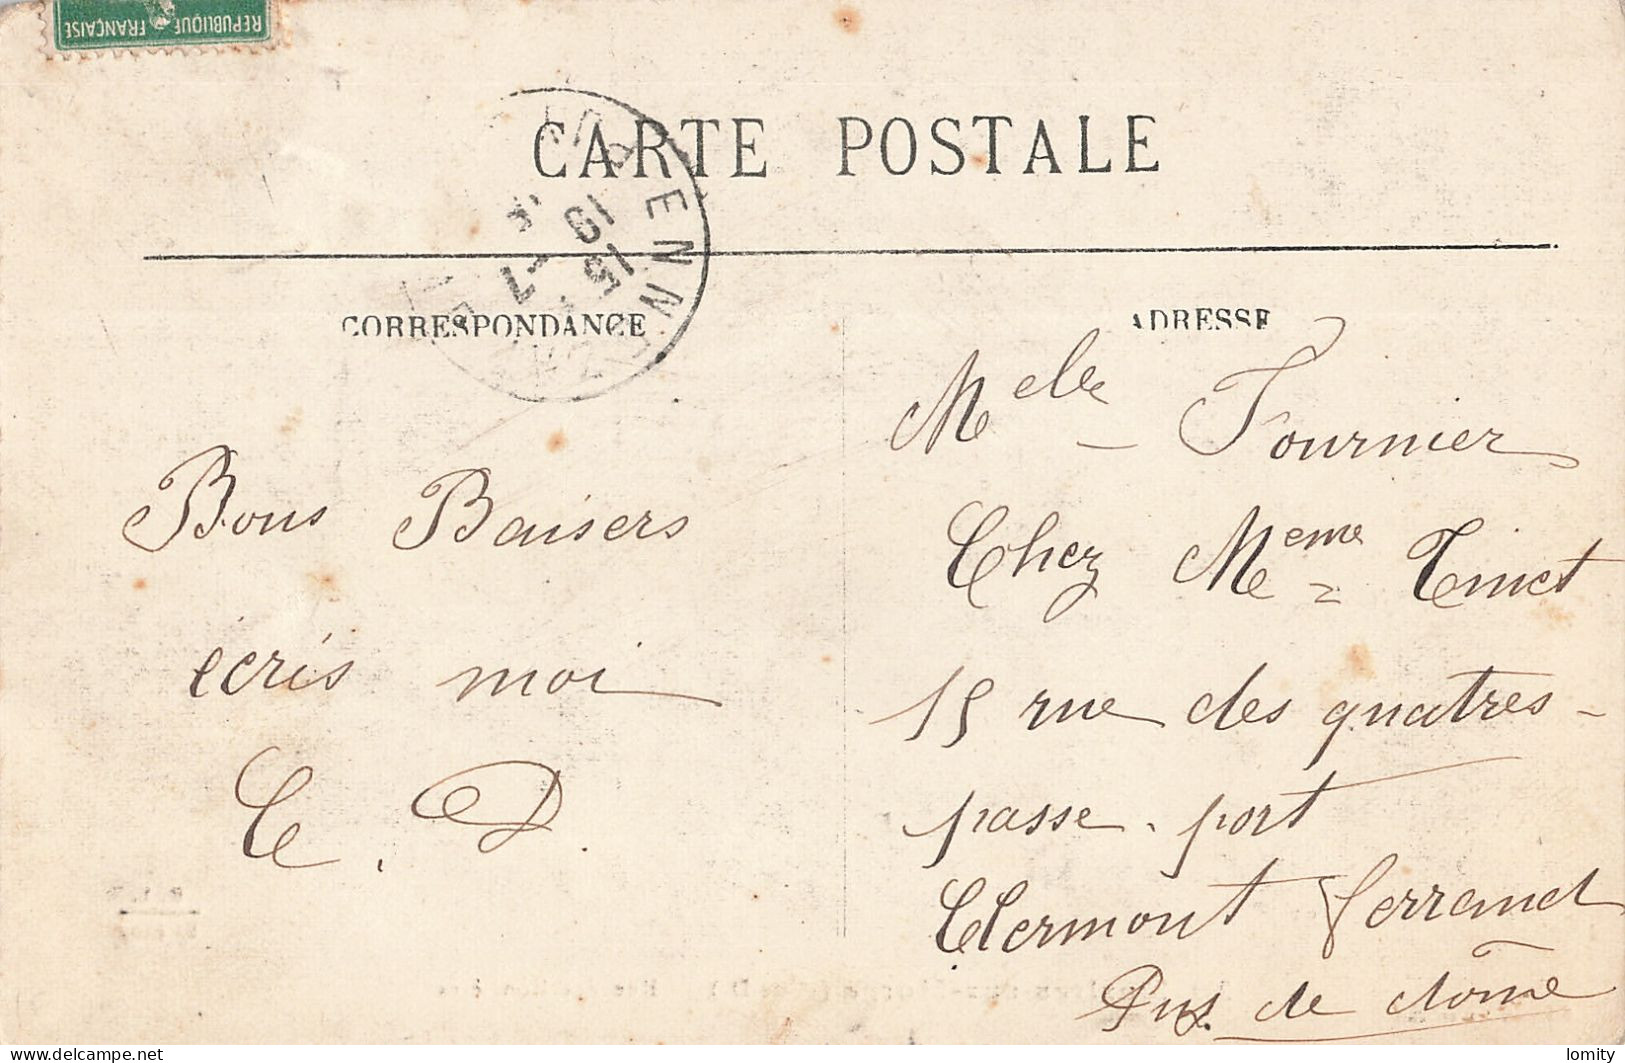 REPUBLIQUE FRANÇAISE
CARTE POSTALE
CORRESPONDANCE
ADRESSE
15 -7
19
Bons Baisers
écris moi
C. D.
Melle Fournier
Chez Meme Tinet
15 rue des quatres-
passe-port
Clermont ferrand
Puy. de dôme
www.delcampe.net
lomity